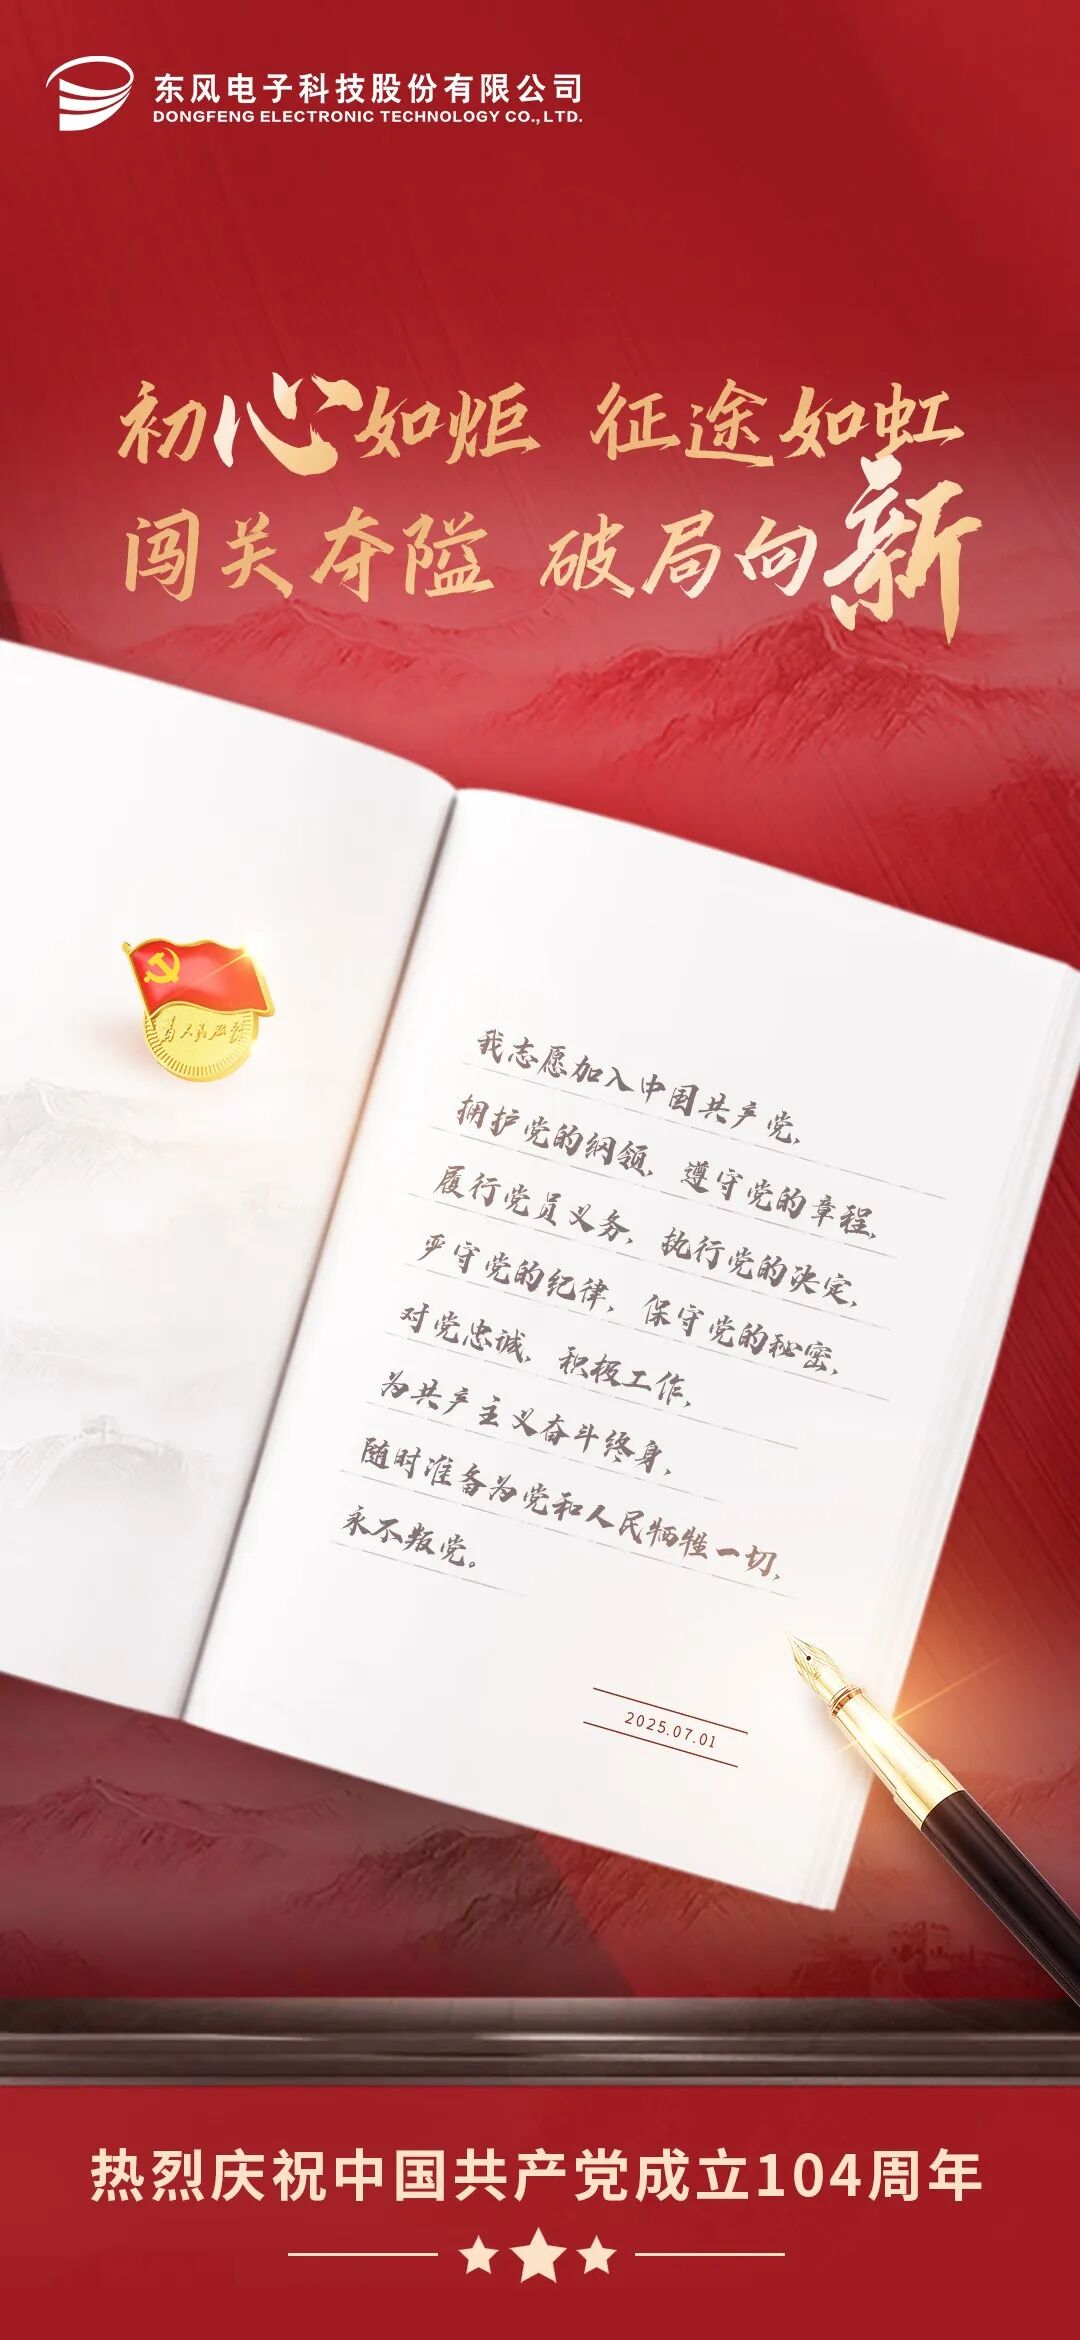 东风电子科技股份有限公司
DONGFENG ELECTRONIC TECHNOLOGY CO.,LTD.
初心如炬 征途如虹
闯关夺隘 破局向新
为人民服务
我志愿加入中国共产党,
拥护党的纲领, 遵守党的章程,
履行党员义务, 执行党的决定,
严守党的纪律, 保守党的秘密,
对党忠诚, 积极工作,
为共产主义奋斗终身,
随时准备为党和人民牺牲一切,
永不叛党。
2025.07.01
热烈庆祝中国共产党成立104周年